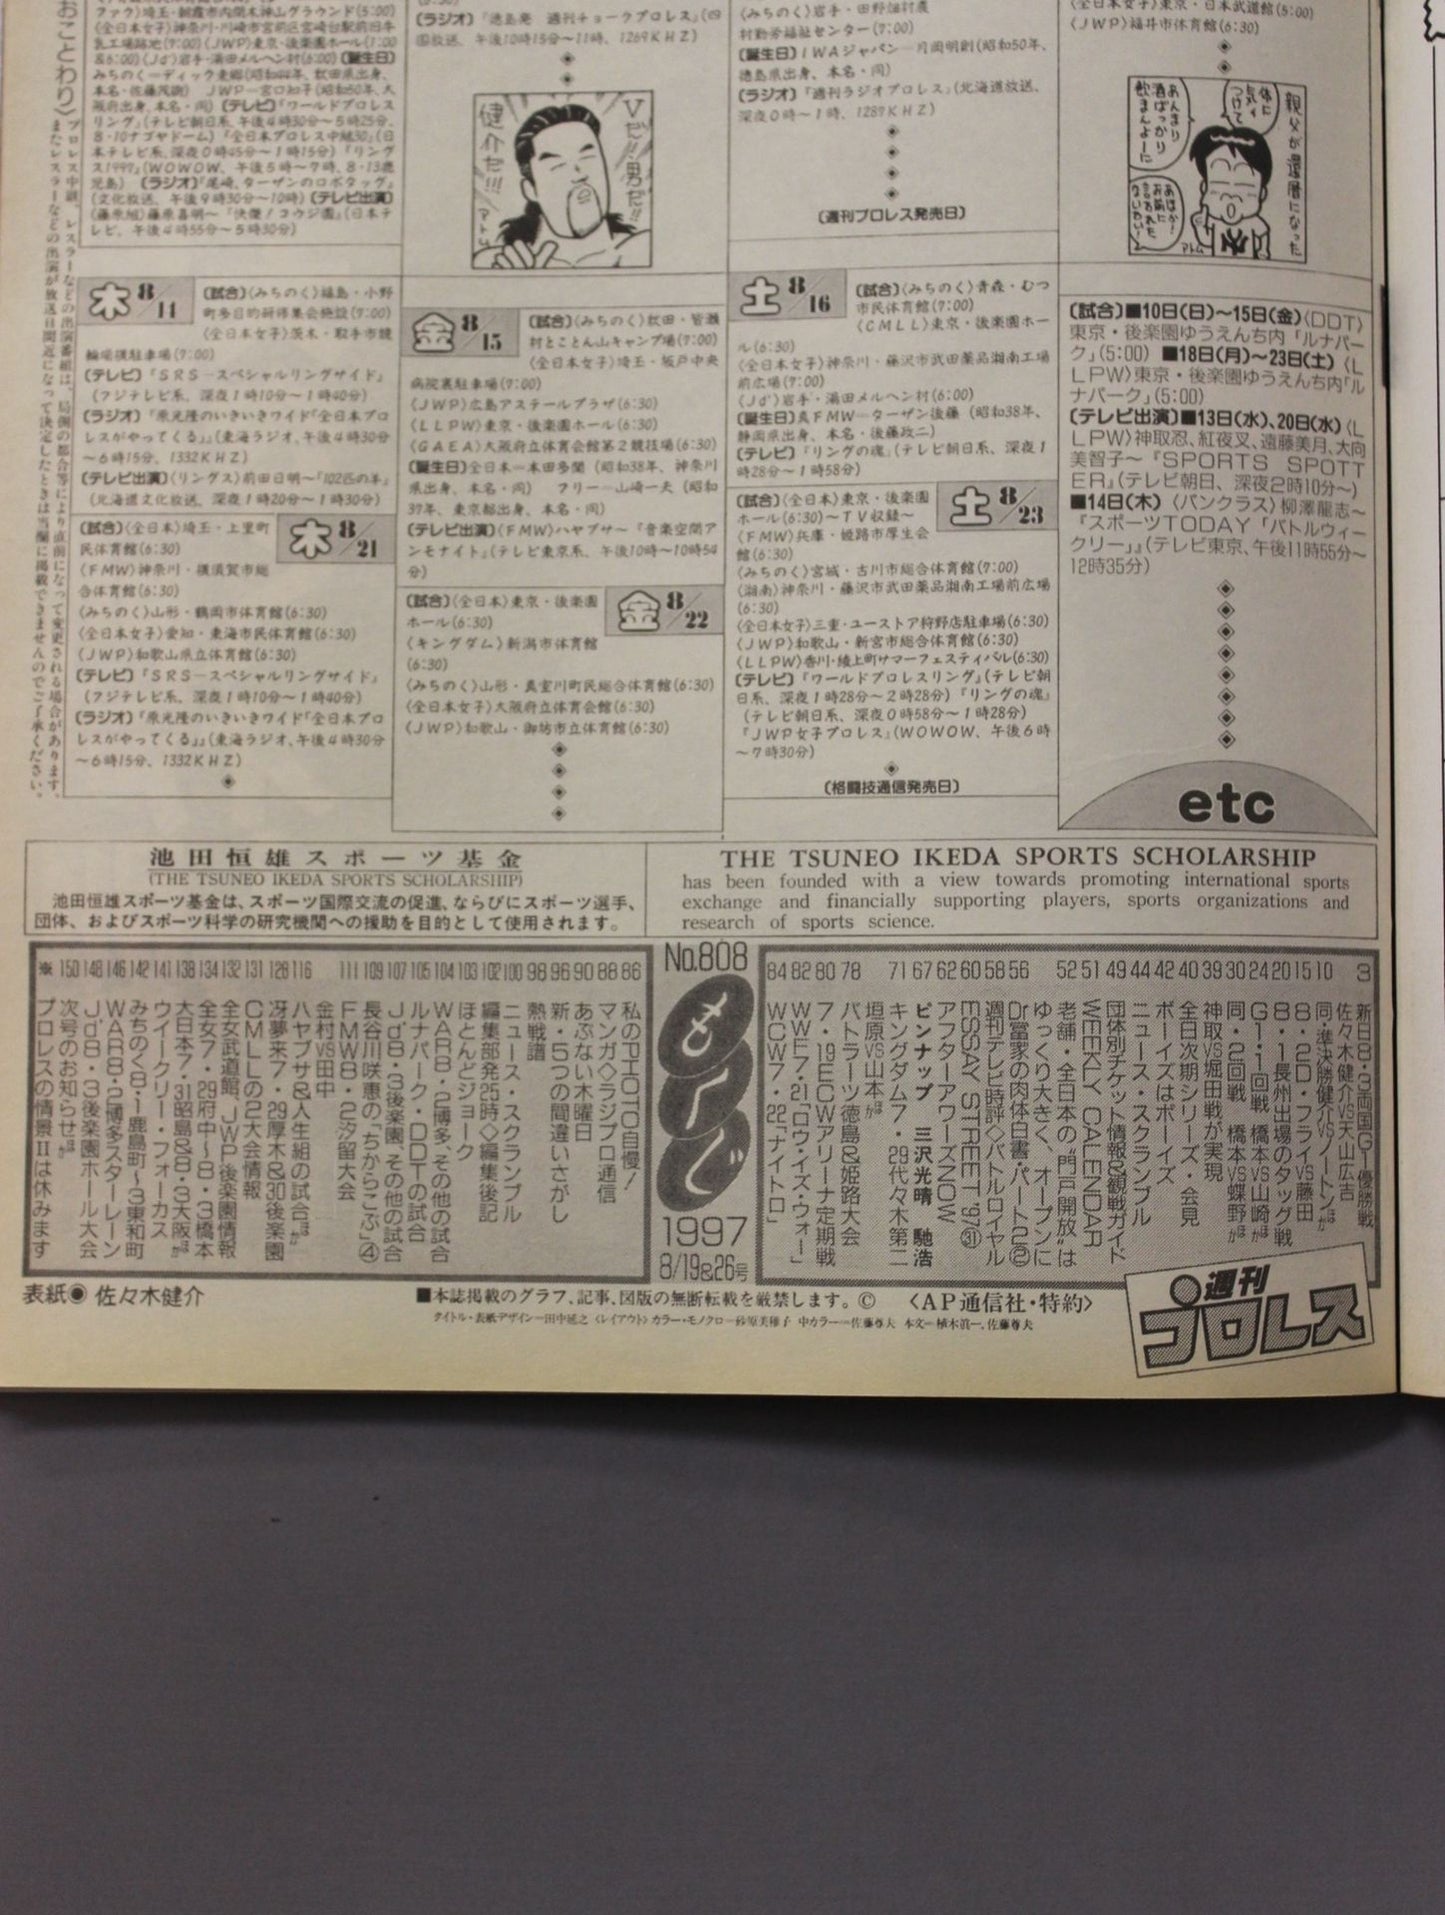 ファク〉埼玉・朝霞市内間木神山グラウンド(5:00)
〈全日本女子〉神奈川・川崎市宮前区宮崎台駅前田辛
乳工場跡地(7:00)〈JWP〉東京・後楽園ホール(1:00
&6:00)〈Jd'〉岩手・湯田メルヘン村(6:00)【誕生日】
みちのく=ディック東郷(昭和44年、秋田県出身、
本名・佐藤茂樹) JWP=宮口知子(昭和50年、大
阪府出身、本名・同)【テレビ】『ワールドプロレス
リング』(テレビ朝日系、午後4時30分～5時25分、
8・10ナゴヤドーム)『全日本プロレス中継30』(日
本テレビ系、深夜0時45分～1時15分)『リング
ス1997』(WOWOW、午後5時～7時、8・13鹿
児島)【ラジオ】『尾崎、ターザンのロボタッグ』
(文化放送、午後9時30分～10時)【テレビ出演】
〈藤原組〉藤原喜明～『快傑!コウジ園』(日本テ
レビ、午後4時55分～5時30分)
おことわり〉プロレス中継、レスラーなどの出演番組は、局側の都合等により直前になって変更される場合があります。
またレスラーなどの出演が放送日間近になって決定したときは当欄に掲載できませんのでご了承ください。
【ラジオ】『徳島発 週刊チョークプロレス』(四
国放送、午後10時15分～11時、1269KHZ)
Vだ!!男だ!!
健介だ!!!
アトム
〈みちのく〉岩手・田野畑村農
村勤労福祉センター(7:00)
【誕生日】IWAジャパン=月岡明則(昭和50年、
徳島県出身、本名・同)
【ラジオ】『週刊ラジオプロレス』(北海道放送、
深夜0時～1時、1287KHZ)
【週刊プロレス発売日】
〈全日本女子〉東京・日本武道館(5:00)
〈JWP〉福井市体育館(6:30)
親父が還暦になった
体に気ィつけて
あんまり酒ばっかり飲まんよーに
あほか!お前に言われたないわい!
アトム
木 8/14
【試合】〈みちのく〉福島・小野
町多目的研修集会施設(7:00)
〈全日本女子〉茨木・取手市競
輪場横駐車場(7:00)
【テレビ】『SRS—スペシャルリングサイド』
(フジテレビ系、深夜1時10分～1時40分)
【ラジオ】『原光隆のいきいきワイド「全日本プロ
レスがやってくる」』(東海ラジオ、午後4時30分
～6時15分、1332KHZ)
【テレビ出演】〈リングス〉前田日明～『102匹の羊』
(北海道文化放送、深夜1時20分～1時30分)
木 8/21
【試合】〈全日本〉埼玉・上里町
民体育館(6:30)
〈FMW〉神奈川・横須賀市総
合体育館(6:30)
〈みちのく〉山形・鶴岡市体育館(6:30)
〈全日本女子〉愛知・東海市民体育館(6:30)
〈JWP〉和歌山県立体育館(6:30)
【テレビ】『SRS—スペシャルリングサイド』
(フジテレビ系、深夜1時10分～1時40分)
【ラジオ】『原光隆のいきいきワイド「全日本プロ
レスがやってくる」』(東海ラジオ、午後4時30分
～6時15分、1332KHZ)
金 8/15
【試合】〈みちのく〉秋田・皆瀬
村とことん山キャンプ場(7:00)
〈全日本女子〉埼玉・坂戸中央
病院裏駐車場(7:00)
〈JWP〉広島アステールプラザ(6:30)
〈LLPW〉東京・後楽園ホール(6:30)
〈GAEA〉大阪府立体育会館第2競技場(6:30)
【誕生日】全日本=本田多聞(昭和38年、神奈川
県出身、本名・同) フリー=山崎一夫(昭和
37年、東京都出身、本名・同)
【テレビ出演】〈FMW〉ハヤブサ～『音楽空間ア
ンモナイト』(テレビ東京系、午後10時～10時54
分)
金 8/22
【試合】〈全日本〉東京・後楽園
ホール(6:30)
〈キングダム〉新潟市体育館
(6:30)
〈みちのく〉山形・真室川町民総合体育館(6:30)
〈全日本女子〉大阪府立体育会館(6:30)
〈JWP〉和歌山・御坊市立体育館(6:30)
土 8/16
【試合】〈みちのく〉青森・むつ
市民体育館(7:00)
〈CMLL〉東京・後楽園ホー
ル(6:30)
〈全日本女子〉神奈川・藤沢市武田薬品湘南工場
前広場(7:00)
〈Jd'〉岩手・湯田メルヘン村(6:00)
【誕生日】真FMW=ターザン後藤(昭和38年、
静岡県出身、本名・後藤政二)
【テレビ】『リングの魂』(テレビ朝日系、深夜1
時28分～1時58分)
土 8/23
【試合】〈全日本〉東京・後楽園
ホール(6:30)～TV収録～
〈FMW〉兵庫・姫路市厚生会
館(6:30)
〈みちのく〉宮城・古川市総合体育館(7:00)
〈湘南〉神奈川・藤沢市武田薬品湘南工場前広場
(6:30)
〈全日本女子〉三重・ユーストア狩野店駐車場(6:30)
〈JWP〉和歌山・新宮市総合体育館(6:30)
〈LLPW〉香川・綾上町サマーフェスティバル(6:30)
【テレビ】『ワールドプロレスリング』(テレビ朝
日系、深夜1時28分～2時28分)『リングの魂』
(テレビ朝日系、深夜0時58分～1時28分)
『JWP女子プロレス』(WOWOW、午後6時
～7時30分)
【格闘技通信発売日】
【試合】■10日(日)～15日(金)〈DDT〉
東京・後楽園ゆうえんち内「ルナパー
ク」(5:00) ■18日(月)～23日(土)〈L
LPW〉東京・後楽園ゆうえんち内「ル
ナパーク」(5:00)
【テレビ出演】■13日(水)、20日(水)〈L
LPW〉神取忍、紅夜叉、遠藤美月、大向
美智子～『SPORTS SPOTT
ER』(テレビ朝日、深夜2時10分～)
■14日(木)〈パンクラス〉柳澤龍志～
『スポーツTODAY「バトルウィー
クリー」』(テレビ東京、午後11時55分～
12時35分)
etc
池田恒雄スポーツ基金
(THE TSUNEO IKEDA SPORTS SCHOLARSHIP)
池田恒雄スポーツ基金は、スポーツ国際交流の促進、ならびにスポーツ選手、
団体、およびスポーツ科学の研究機関への援助を目的として使用されます。
THE TSUNEO IKEDA SPORTS SCHOLARSHIP
has been founded with a view towards promoting international sports
exchange and financially supporting players, sports organizations and
research of sports science.
3 新日8・3両国G1優勝戦
佐々木健介VS天山広吉
10 同・準決勝健介VSノートンほか
15 8・2D・フライVS藤田
20 8・1長州出場のタッグ戦
24 G1・1回戦 橋本VS山崎ほか
30 同・2回戦 橋本VS蝶野ほか
39 神取VS堀田戦が実現
40 全日次期シリーズ・会見
42 ボーイズはボーイズ
44 ニュース・スクランブル
49 団体別チケット情報&観戦ガイド
51 WEEKLY CALENDAR
52 老舗・全日本の“門戸開放”は
ゆっくり大きく、オープンに
56 Dr.富家の肉体白書・パート2⑫
58 週刊テレビ時評◇バトルロイヤル
60 ESSAY STREET '97㉛
62 アフターアワーズNOW
67 ピンナップ 三沢光晴 馳浩
71 キングダム7・29代々木第二
垣原VS山本ほか
78 バトラーツ徳島&姫路大会
80 7・19ECWアリーナ定期戦
82 WWF7・21「ロウ・イズ・ウォー」
84 WCW7・22「ナイトロ」
No.808
もくじ
1997
8/19&26号
86 私のPHOTO自慢!
88 マンガ◇ラジプロ通信
90 あぶない木曜日
96 新・5つの間違いさがし
98 熱戦譜
100 ニュース・スクランブル
102 編集部発25時◇編集後記
103 ほとんどジョーク
104 WAR8・2博多、その他の試合
105 ルナパーク・DDTの試合
107 Jd'8・3後楽園、その他の試合
109 長谷川咲恵の「ちからこぶ」④
111 FMW8・2汐留大会
金村VS田中
116 ハヤブサ&人生組の試合ほか
126 冴夢来7・29厚木&30後楽園
131 CMLLの2大会情報
132 全女武道館、JWP後楽園情報
134 全女7・29府中～8・3橋本
138 大日本7・31昭島&8・3大阪ほか
141 ウイークリー・フォーカス
142 みちのく8・1鹿島町～3東和町
146 WAR8・2博多スターレーン
148 Jd'8・3後楽園ホール大会
150 次号のお知らせほか
※ プロレスの情景Ⅱは休みます
表紙◉ 佐々木健介
■本誌掲載のグラフ、記事、図版の無断転載を厳禁します。© 〈AP通信社・特約〉
タイトル・表紙デザイン=田中延之〈レイアウト〉カラー・モノクロ=砂原美穂子 中カラー=佐藤尊夫 本文=植木眞一、佐藤尊夫
週刊プロレス